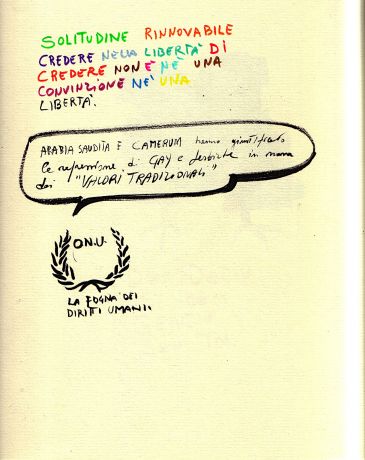 SOLITUDINE RINNOVABILE
CREDERE NELLA LIBERTÀ DI
CREDERE NON È NÈ UNA
CONVINZIONE NÈ UNA
LIBERTÀ.
ARABIA SAUDITA E CAMERUM hanno giustificato
le repressione di GAY e lesbiche in nome
dei "VALORI TRADIZIONALI"
O.N.U.
LA FOGNA DEI
DIRITTI UMANI.